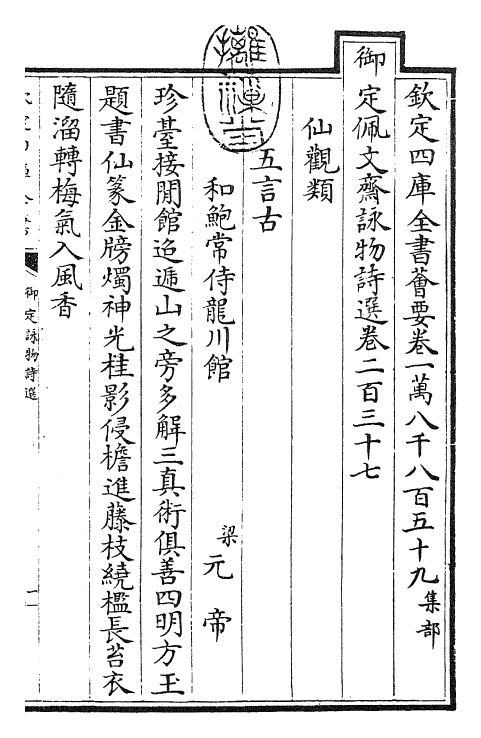 欽定四庫全書薈要卷一萬八千八百五十九 集部
御定佩文齋詠物詩選卷二百三十七
仙觀類
五言古
和鮑常侍龍川館 梁 元帝
珍臺接閒館迢遞山之旁多解三真術俱善四明方玉
題書仙篆金牓燭神光桂影侵檐進藤枝繞檻長苔衣
隨溜轉梅氣入風香
御定詠物詩選